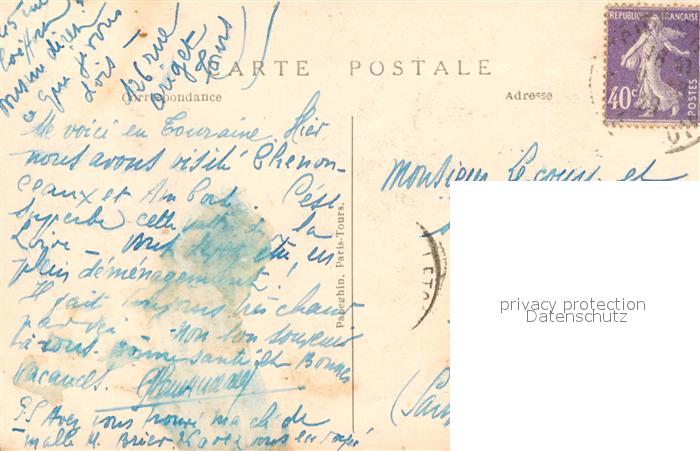 126 rue
Origet
Tours
CARTE POSTALE
Correspondance
Adresse
REPUBLIQUE FRANÇAISE
40c
POSTES
Me voici en Touraine. Hier
nous avons visité Chenon-
ceaux et Amboise. C'est
superbe cette vallée de la
Loire
plein déménagement!
Il fait toujours très chaud
par ici. Mon bon souvenir
à tous. Bonne santé et Bonnes
Vacances.
P.S Avez vous trouvé ma clé de
malle M. Brier
Papeghin, Paris-Tours.
Monsieur et
privacy protection
Datenschutz